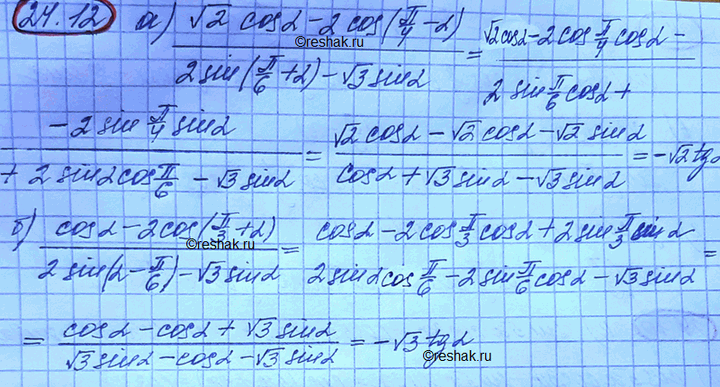 24.12 а) (√2 cosα - 2 cos(π/4 - α)) / (2 sin(π/6 + α) - √3 sinα) = √2 cosα - 2 cos π/4 cosα - / 2 sin π/6 cosα +
- 2 sin π/4 sinα / + 2 sinα cos π/6 - √3 sinα = (√2 cosα - √2 cosα - √2 sinα) / (cosα + √3 sinα - √3 sinα) = -√2 tgα
©reshak.ru
б) (cosα - 2cos(π/3 + α)) / (2 sin(α - π/6) - √3 sinα) = (cosα - 2 cos π/3 cosα + 2 sin π/3 sinα) / (2 sinα cos π/6 - 2 sin π/6 cosα - √3 sinα) =
©reshak.ru
= (cosα - cosα + √3 sinα) / (√3 sinα - cosα - √3 sinα) = -√3 tgα
©reshak.ru